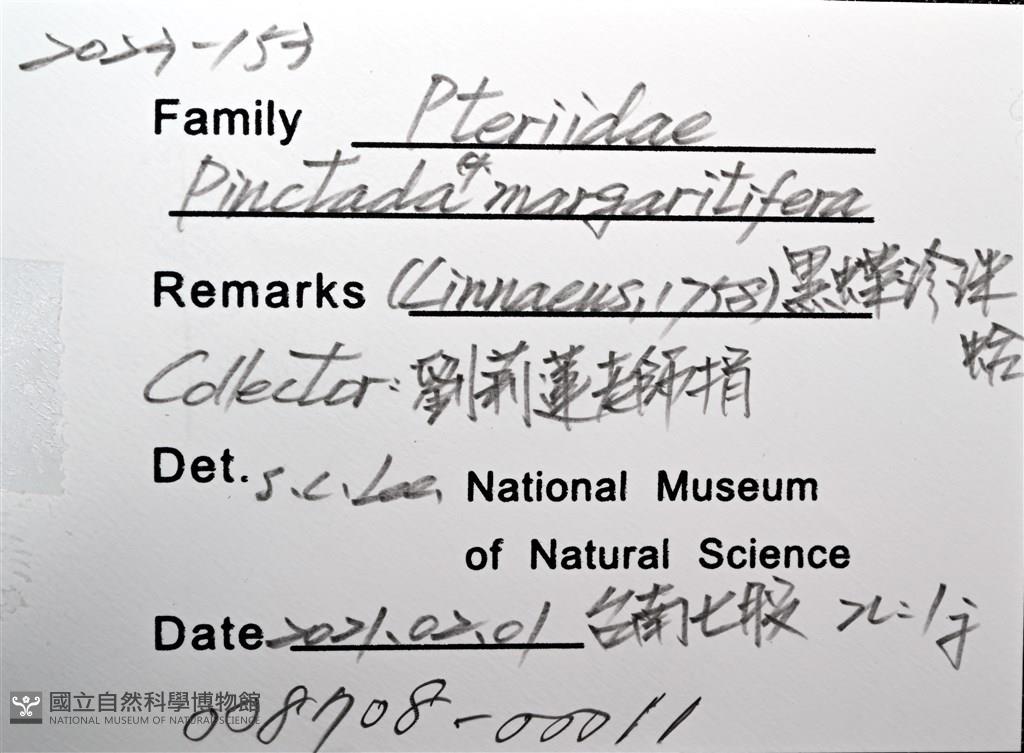 2023-153
Family Pteriidae
Pinctada cf. margaritifera
Remarks (Linnaeus, 1758) 黑蝶珍珠
蛤
Collector: 劉莉蓮老師捐
Det. S.C. Lee, National Museum
of Natural Science
Date 2021.02.01 台南七股 n=1子
008708-00011
國立自然科學博物館
NATIONAL MUSEUM OF NATURAL SCIENCE